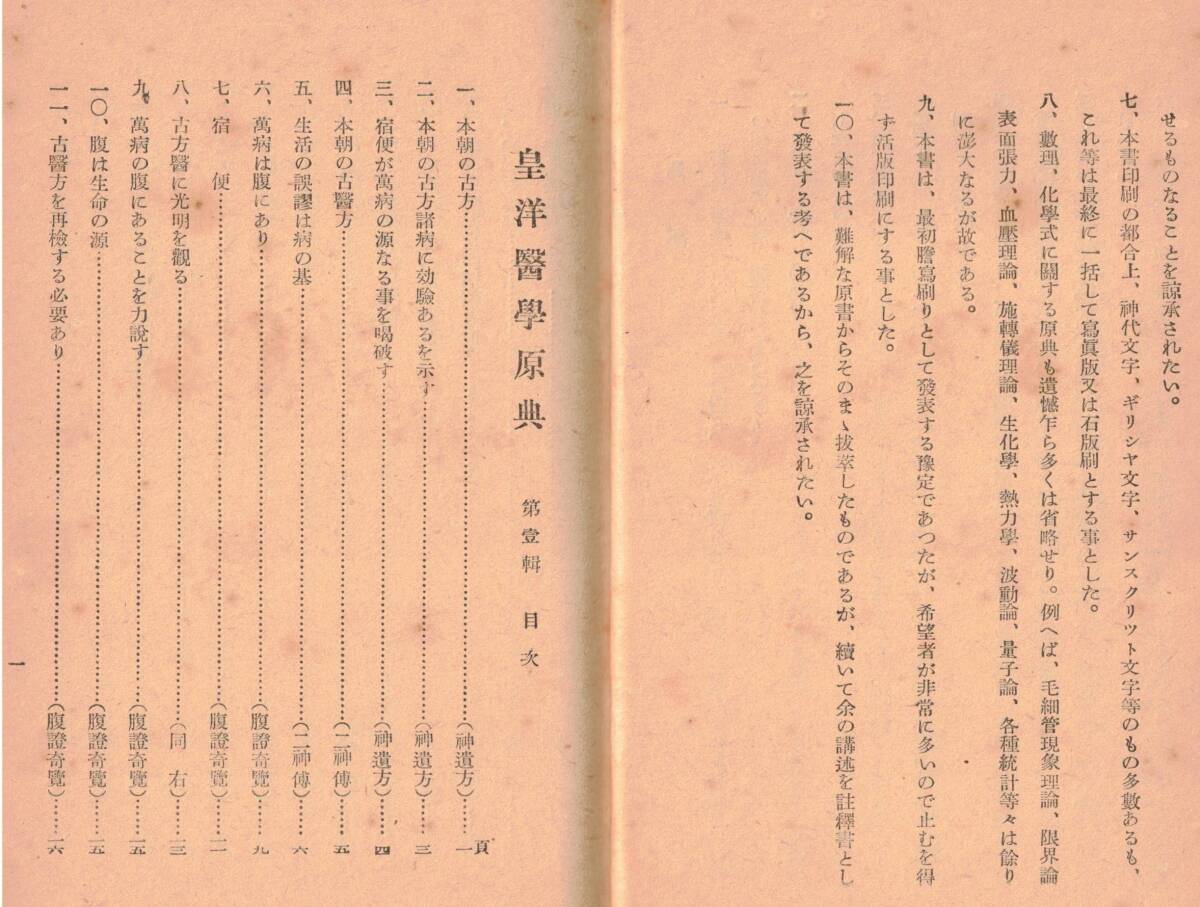 せるものなることを諒承されたい。
七、本書印刷の都合上、神代文字、ギリシヤ文字、サンスクリツト文字等のもの多數あるも、
これ等は最終に一括して寫眞版又は石版刷とする事とした。
八、數理、化學式に關する原典も遺憾乍ら多くは省略せり。例へば、毛細管現象理論、限界論
表面張力、血壓理論、施轉儀理論、生化學、熱力學、波動論、量子論、各種統計等々は餘り
に澎大なるが故である。
九、本書は、最初謄寫刷りとして發表する豫定であつたが、希望者が非常に多いので止むを得
ず活版印刷にする事とした。
一〇、本書は、難解な原書からそのまゝ拔萃したものであるが、續いて余の講述を註釋書とし
て發表する考へであるから、之を諒承されたい。
皇洋醫學原典 第壹輯 目次
頁
一、本朝の古方……(神遺方)……一
二、本朝の古方諸病に効驗あるを示す……(神遺方)……三
三、宿便が萬病の源なる事を喝破す……(神遺方)……四
四、本朝の古醫方……(二神傳)……五
五、生活の誤謬は病の基……(二神傳)……六
六、萬病は腹にあり……(腹證奇覽)……九
七、宿 便……(腹證奇覽)……一一
八、古方醫に光明を觀る……(同 右)……一三
九、萬病の腹にあることを力說す……(腹證奇覽)……一五
一〇、腹は生命の源……(腹證奇覽)……一五
一一、古醫方を再檢する必要あり……(腹證奇覽)……一六
一